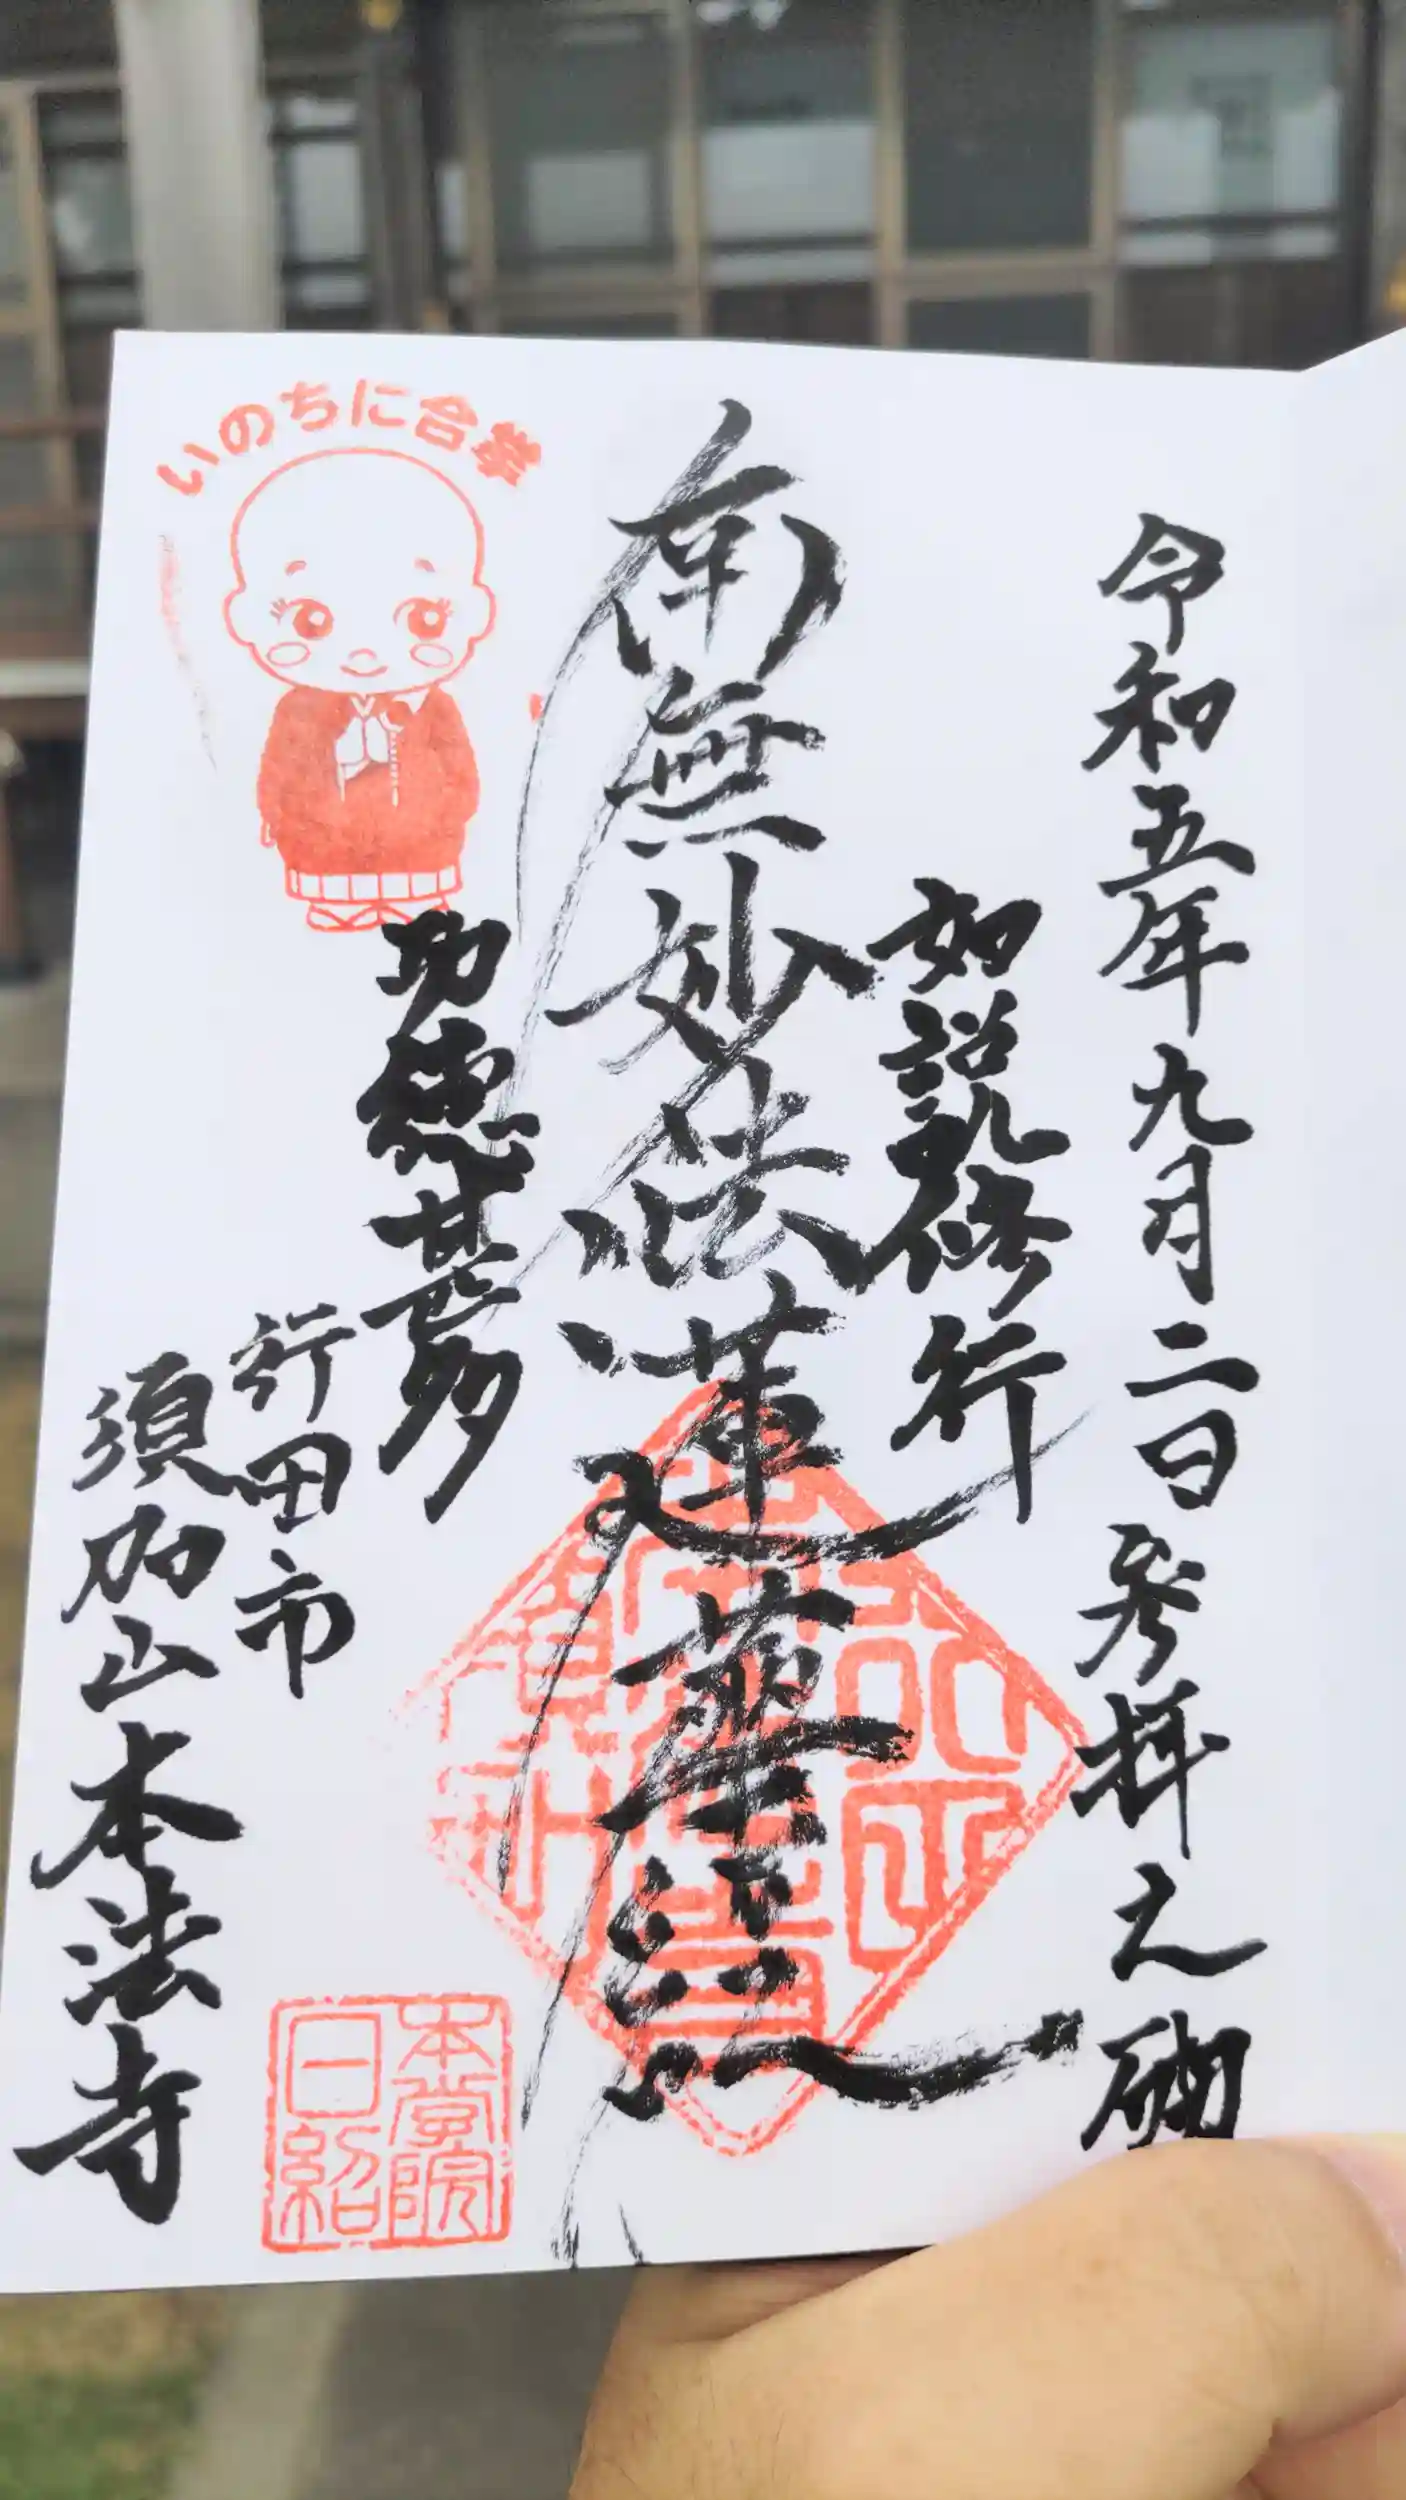 令和五年九月二日参拝之砌
如説修行
南無妙法蓮華経
功徳甚多
行田市
須加山本法寺
いのちに合掌
本堂院
日紹